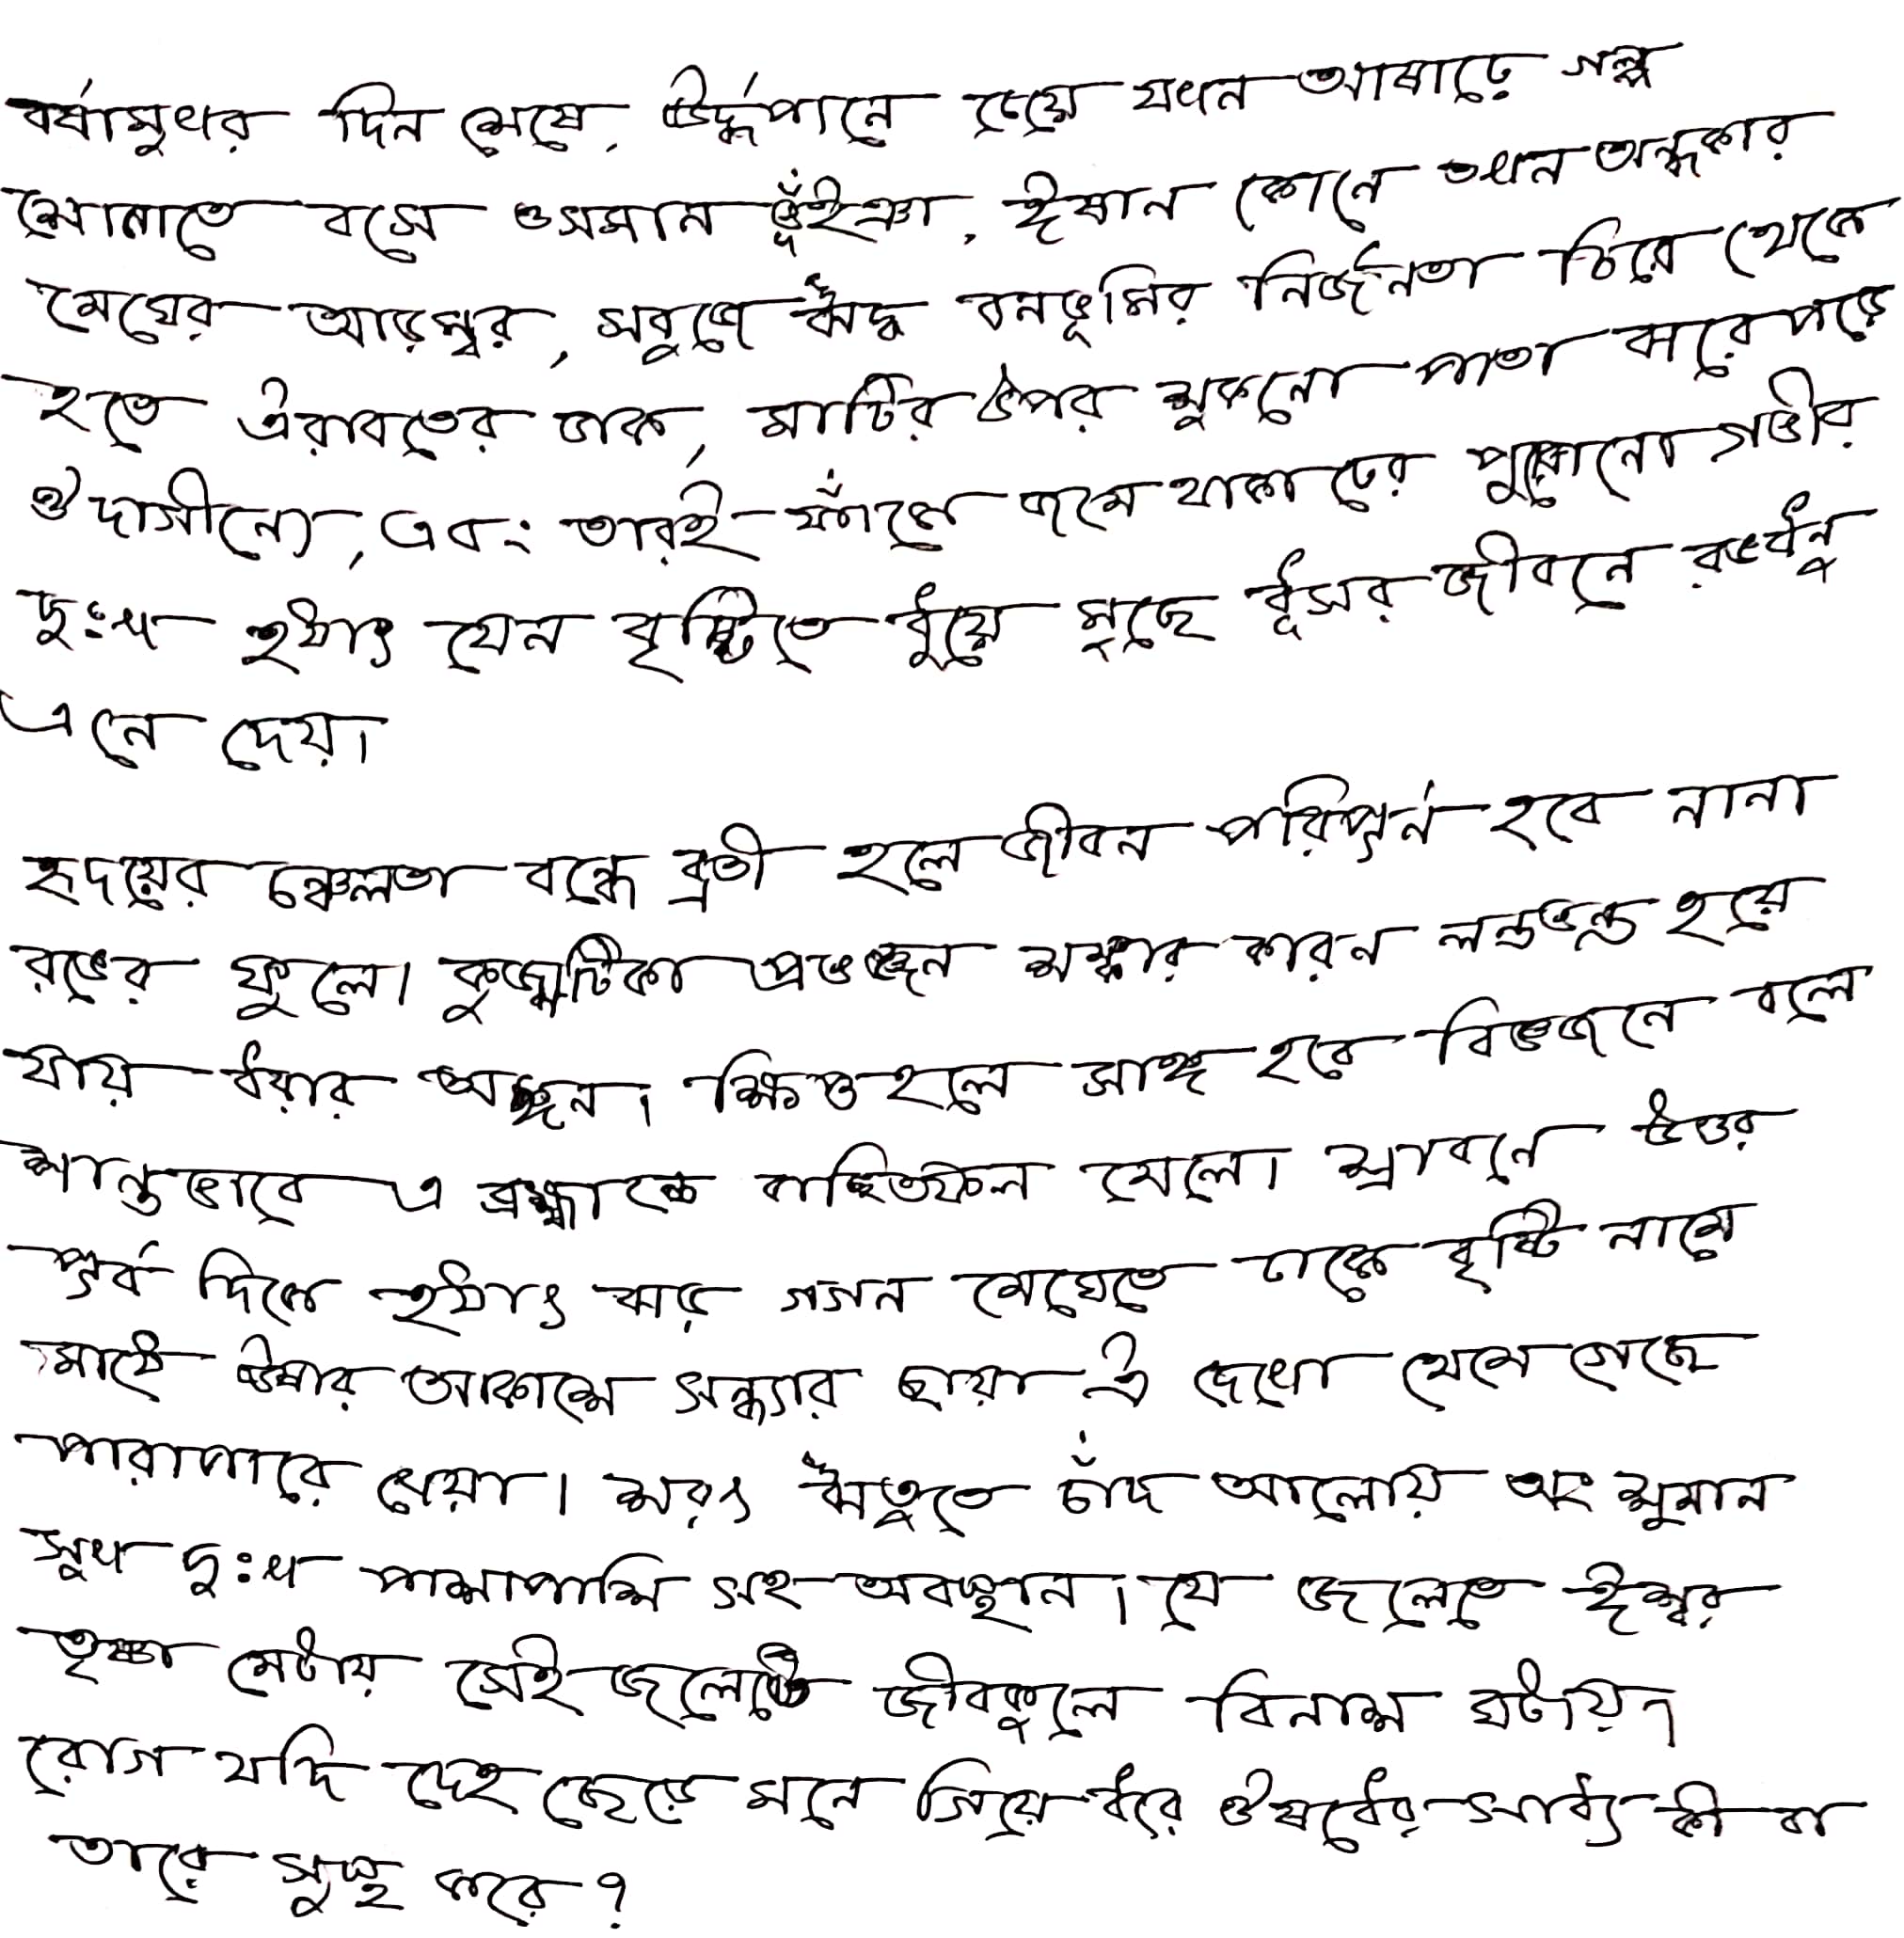 বর্ষামুখর দিন শেষে, ঊর্দ্ধপানে চেয়ে যখন আষাঢ়ে গল্প
শোনাতে বসে ওসমান ভুঁইঞা, ঈষান কোনে তখন অন্ধকার
মেঘের আড়ম্বর, সবুজে ঋদ্ধ বনভূমির নির্জনতা চিরে থেকে
হতে ঐরাবতের ডাক, মাটির উপর শুকনো পাতা ঝরে পড়ে
ঔদাসীন্যে, এবং তারই ফাঁকে জমে থাকা ঢের পুরোনো গভীর
দুঃখ হঠাৎ যেন বৃষ্টিতে ধুয়ে মুছে ধূসর জীবনে রঙধনু
এনে দেয়।
হৃদয়ের চঞ্চলতা বন্ধে ব্রতী হলে জীবন পরিপূর্ন হবে নানা
রঙের ফুলে। কুজ্ঝটিকা প্রভঞ্জন শঙ্কার কারন লন্ডভন্ড হয়ে
যায় ধরার অঙ্গন। ক্ষিপ্ত হলে সাঙ্গ হবে বিজ্ঞজনে বলে
শান্তভাবে এ ব্রহ্মান্ডে বাঞ্ছিতফল মেলে। শ্রাবনে উত্তর
পূর্ব দিকে হঠাৎ ঝড় গগন মেঘেতে ঢাকে বৃষ্টি নামে
মাঠে ঊষার আকাশে সন্ধ্যার ছায়া ঐ দেখো থেমে গেছে
পারাপারে খেয়া। শরৎ ঋতুতে চাঁদ আলোয় অংশুমান
সুখ দুঃখ পাশাপাশি সহ অবস্থান। যে জলেতে ঈশ্বর
তৃষ্ণা মেটায় সেই জলেতে জীবকুলে বিনাশ ঘটায়।
রোগ যদি দেহ ছেড়ে মনে গিয়ে ধরে ঔষধের সাধ্য কী বা
তারে সুস্থ করে?